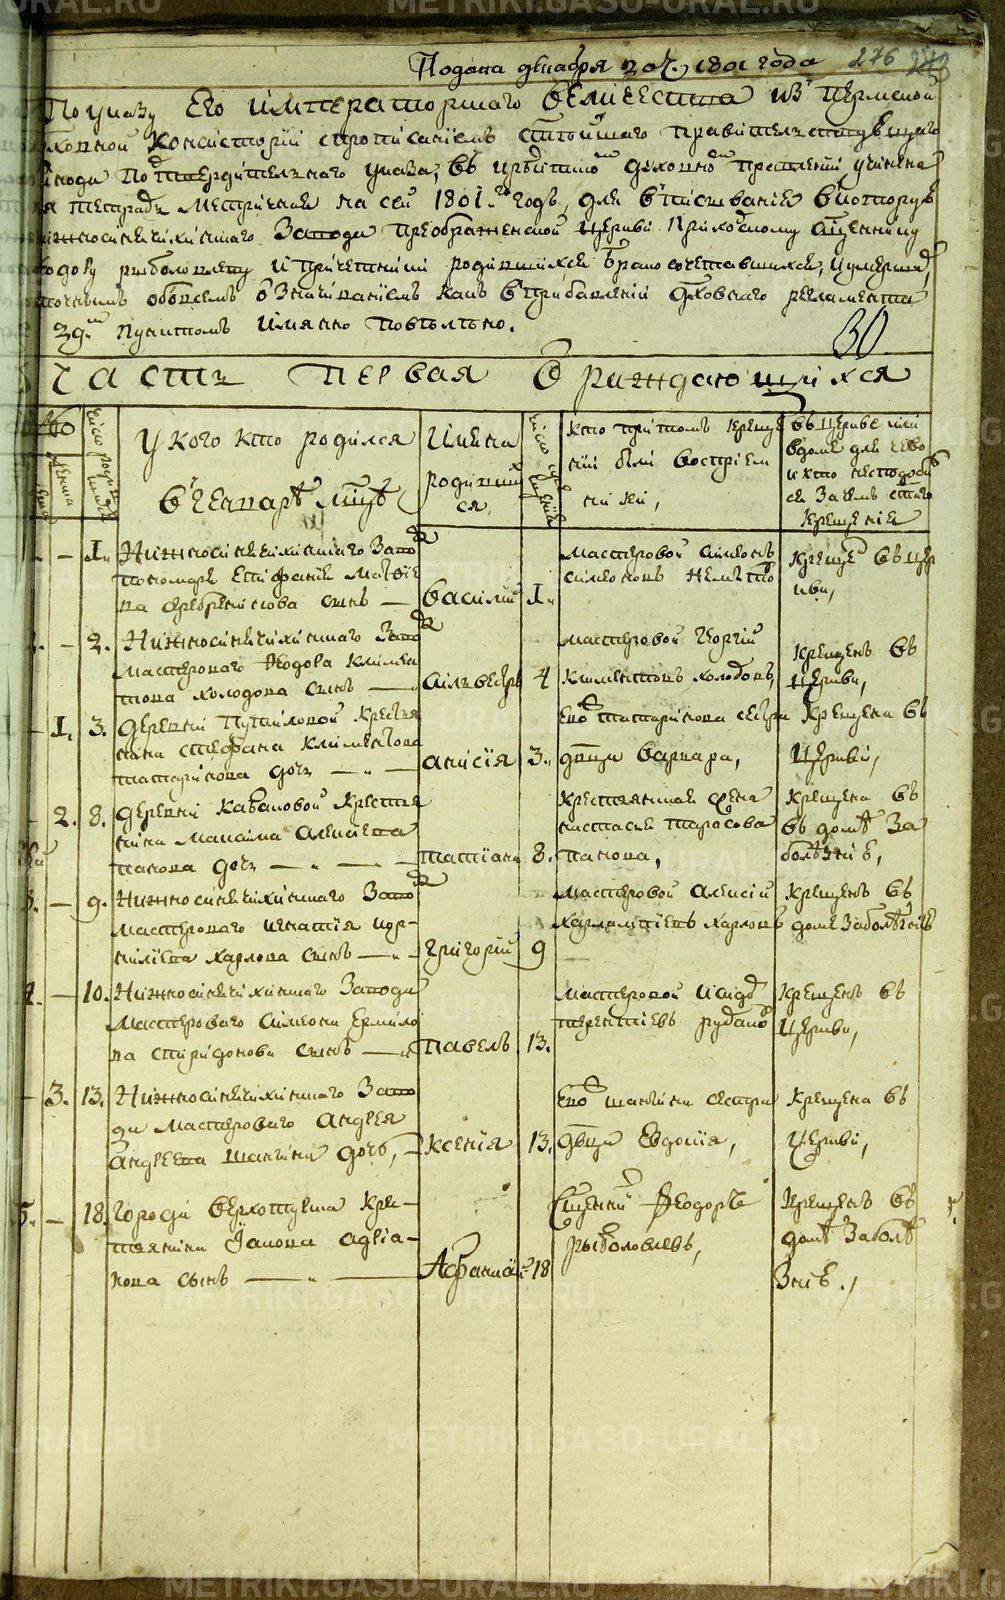 METRIKI.GASO-URAL.RU
Подана декабря 1801 года 276
По указу Его императорскаго величества изъ пермской
духовной консистории с прописаниемъ святейшаго правителствующаго
синода подтвердителнаго указа, въ духовно правлении учинена
сия тетрадь метрическая на сей 1801й годъ, для вписывания в которую
нижносинячихинскаго завода преображенской церкви приходскому священнику
Феодору рыболовлеву и причетниками родившихся бракосочетавшихся, и умерших
точнымъ обо всемъ означиваниемъ какъ в прибавлении духовнаго регламента
29м пунктомъ имянно повелено.
30
часть первая О раждающихся
У кого кто родился
в генваре месяце
Имена
родивших
ся
кто при томъ креще
нии были восприем
ники,
въ церкве или
в доме для чево
и кто не сподоби
ся за чемъ сего
крещения
1. Нижносинячихинскаго завода
пономаря Епифания Матфие
ва сынъ —
василий
1.
мастеровой симеонъ
симеоновъ
крещенъ въ цер
кви,
2. Нижносинячихинскаго завода
мастероваго Феодора Климен
това холодова сынъ —
силвестръ
4
мастеровой георгий
Климентовъ холодовъ,
крещенъ въ
церкви,
1. 3. деревни Путиловой крестья
нина стефана климентова
татаринова дочь — " —
анисия
3.
ево татаринова сестра
девица варвара,
крещена въ
церкви,
2. 8. деревни Кабановой крестья
нина максима алексеева
панова дочь — " —
татиана
8.
крестьянская жена
настасья тарасова
панова,
крещена въ
въ доме за
болезнию,
3. — 9. Нижносинячихинскаго завода
мастероваго игнатия кор-
нилиева харлова сынъ — " —
григорий
9
мастеровой алексий
харлампиевъ харловъ
крещенъ въ
доме за болезнию
4. — 10. Нижносинячихинскаго завода
мастероваго симеона Ермило
ва спиридонова сынъ —
павелъ
13.
мастеровой исидоръ
терентиевъ рудаковъ
крещенъ въ
церкви,
3. 13. Нижносинячихинскаго заво
да мастероваго андрея
андреева дочь,
ксения
13.
ево сестра
девица Евдокия,
крещена въ
церкви,
5. — 18. города верхотурья кре-
стьянина Иакова адриа-
нова сынъ — " —
Афанасий
18
священникъ Феодоръ
рыболовлевъ,
крещенъ въ
доме за боле
знию.,
METRIKI.GASO-URAL.RU
METRIKI.GASO-URAL.RU
METRIKI.GASO-URAL.RU